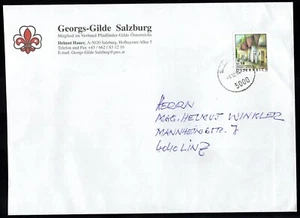 Georgs-Gilde Salzburg
Mitglied im Verband Pfadfinder-Gilde Österreichs
Helmut Hauer, A-5020 Salzburg,
Telefon und Fax +43 / 662 / 83 12 10
E-mail: Georgs-Gilde.Salzburg@gmx.at
5000
HERRN
MAG. HELMUT WINKLER
4040 LINZ